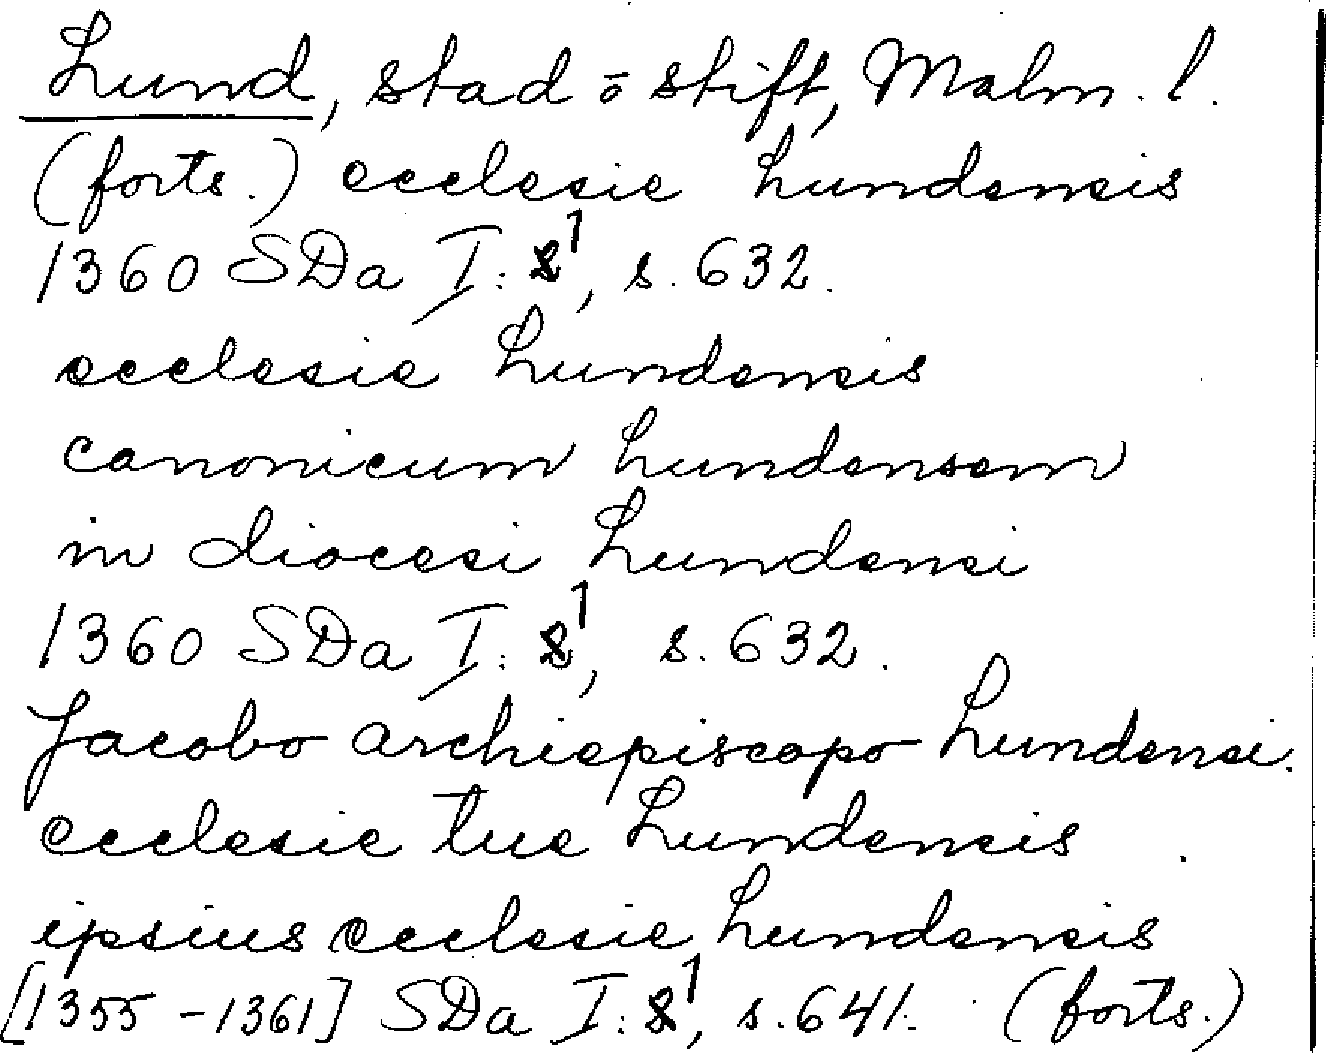 Lund, stad o stift, Malm. l.
(forts.) ecclesie Lundensis
1360 SDa I: 1, s. 632.
ecclesie Lundensis
canonicum Lundensem
in diocesi Lundensi
1360 SDa I: 1, s. 632.
Jacobo archiepiscopo Lundensi.
ecclesie tue Lundensis
ipsius ecclesie Lundensis
[1355-1361] SDa I: 1, s. 641. (forts.)